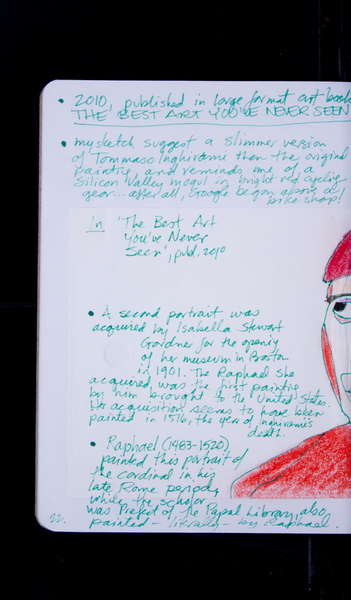 • 2010, published in large format art book
THE BEST ART YOU'VE NEVER SEEN
• my sketch suggest a slimmer version
of Tommaso Inghirami then the original
painting, and reminds me of a
Silicon Valley mogul in bright red cyclic
gear... after all, Google began above a
bike shop!
In 'The Best Art
You've Never
Seen', pub. 2010
• A second portrait was
acquired by Isabella Stewart
Gardner for the opening
of her museum in Boston
in 1901. The Raphael she
acquired, was the first painting
by him brought to the United States.
Her acquisition seems to have been
painted in 1516, the year of Inghirami's
death.
• Raphael (1483-1520)
painted this portrait of
the cardinal in his
late Rome period,
while the scholar
was Prefect of the Papal Library, also
painted - literally - by Raphael.
22.